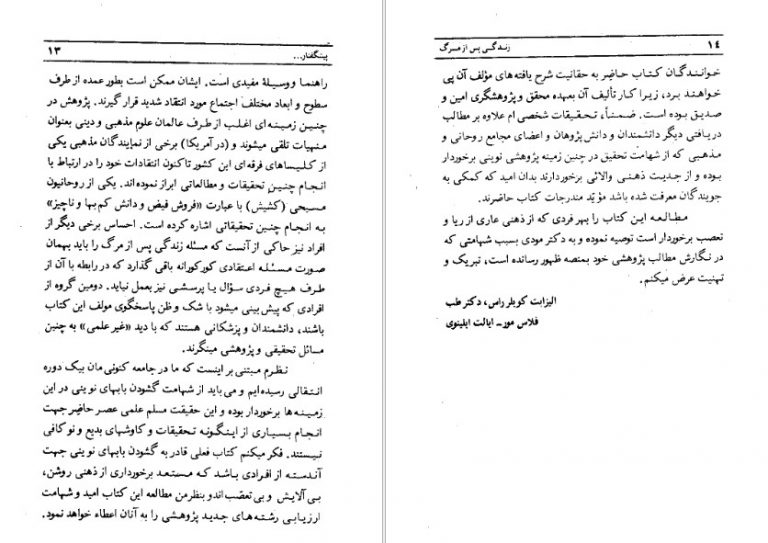 پیشگفتار... ۱۳
راهنما و وسیلهٔ مفیدی است. ایشان ممکن است بطور عمده از طرف
سطوح و ابعاد مختلف اجتماع مورد انتقاد شدید قرار گیرند. پژوهش در
چنین زمینه ای اغلب از طرف عالمان علوم مذهبی و دینی بعنوان
منهیات تلقی میشوند و (در آمریکا) برخی از نمایندگان مذهبی یکی
از کلیساهای فرقه‌ای این کشور تاکنون انتقادات خود را در ارتباط با
انجام چنین تحقیقات و مطالعاتی ابراز نموده‌اند. یکی از روحانیون
مسیحی (کشیش) با عبارت «فروش فیض و دانش کم بها و ناچیز»
به انجام چنین تحقیقاتی اشاره کرده است. احساس برخی دیگر از
افراد نیز حاکی از آنست که مسئله زندگی پس از مرگ را باید بهمان
صورت مسئله اعتقادی کورکورانه باقی گذارد که در رابطه با آن از
طرف هیچ فردی سؤال یا پرسشی نیز بعمل نیاید. دومین گروه از
افرادی که پیش بینی میشود با شک و ظن پاسخگوی مولف این کتاب
باشند، دانشمندان و پزشکانی هستند که با دید «غیر علمی» به چنین
مسائل تحقیقی و پژوهشی مینگرند.
نظرم مبتنی بر اینست که ما در جامعه کنونی مان بیک دوره
انتقالی رسیده ایم و می باید از شهامت گشودن بابهای نوینی در این
زمینه ها برخوردار بوده و این حقیقت مسلم علمی عصر حاضر جهت
انجام بسیاری از اینگونه تحقیقات و کاوشهای بدیع و نو کافی
نیستند. فکر میکنم کتاب فعلی قادر به گشودن بابهای نوینی جهت
آندسته از افرادی باشد که مستعد برخورداری از ذهنی روشن،
بی آلایش و بی تعصّب اند و بنظر من مطالعه این کتاب امید و شهامت
ارزیابی رشته‌های جدید پژوهشی را به آنان اعطاء خواهد نمود.
۱۴ زندگی پس از مرگ
خوانندگان کتاب حاضر به حقانیت شرح یافته‌های مؤلف آن پی
خواهند برد، زیرا کار تألیف آن بعهده محقق و پژوهشگری امین و
صدیق بوده است. ضمناً، تحقیقات شخصی ام علاوه بر مطالب
دریافتی دیگر دانشمندان و دانش پژوهان و اعضای مجامع روحانی و
مذهبی که از شهامت تحقیق در چنین زمینه پژوهشی نوینی برخوردار
بوده و از جدیت ذهنی والائی برخوردارند بدان امید که کمکی به
جویندگان معرفت شده باشد مؤیّد مندرجات کتاب حاضرند.
مطالعه این کتاب را بهر فردی که از ذهنی عاری از ریا و
تعصب برخوردار است توصیه نموده و به دکتر مودی بسبب شهامتی که
در نگارش مطالب پژوهشی خود بمنصه ظهور رسانده است، تبریک و
تهنیت عرض میکنم.
الیزابت کوبلر راس، دکتر طب
فلاس مور ـ ایالت ایلینوی